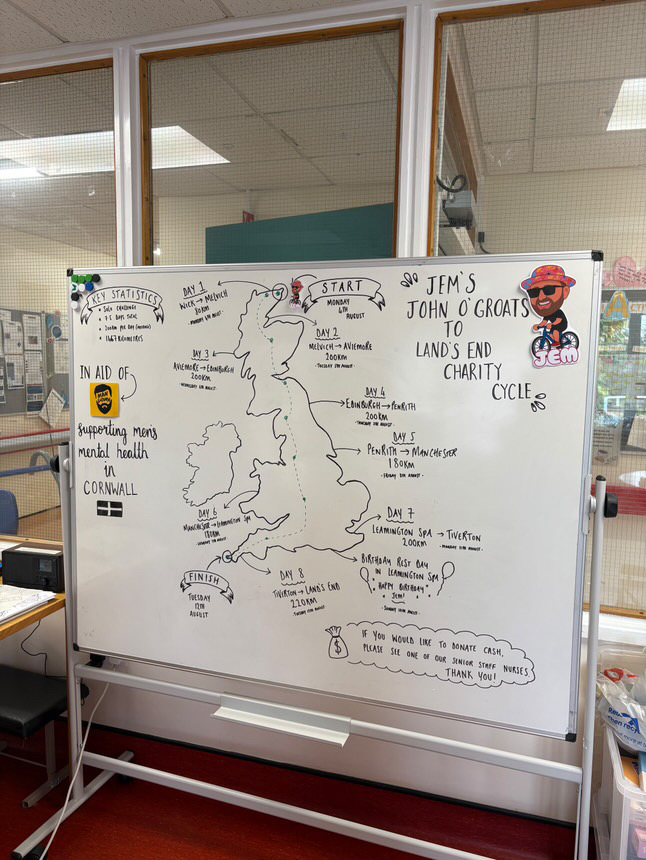 KEY STATISTICS
SOLO CHALLENGE
7.5 DAYS
200KM PER DAY
KILOMETRES
IN AID OF
supporting men's
mental health
in
CORNWALL
DAY 1
WICK → MELVICH
80KM
START
MONDAY
4TH
AUGUST
DAY 2
MELVICH → AVIEMORE
200KM
- TUESDAY 5TH AUGUST -
DAY 3
AVIEMORE → EDINBURGH
200KM
DAY 4
EDINBURGH → PENRITH
200KM
DAY 5
PENRITH → MANCHESTER
180KM
DAY 6
MANCHESTER → LEAMINGTON SPA
180KM
DAY 7
LEAMINGTON SPA → TIVERTON
200KM
- MONDAY 11TH AUGUST -
BIRTHDAY REST DAY
IN LEAMINGTON SPA
HAPPY BIRTHDAY
JEM!
- SUNDAY 10TH AUGUST -
DAY 8
TIVERTON → LAND'S END
220KM
FINISH
TUESDAY
12TH
AUGUST
JEM'S
JOHN O'GROATS
TO
LAND'S END
CHARITY
CYCLE
JEM
IF YOU WOULD LIKE TO DONATE CASH,
PLEASE SEE ONE OF OUR SENIOR STAFF NURSES
THANK YOU!